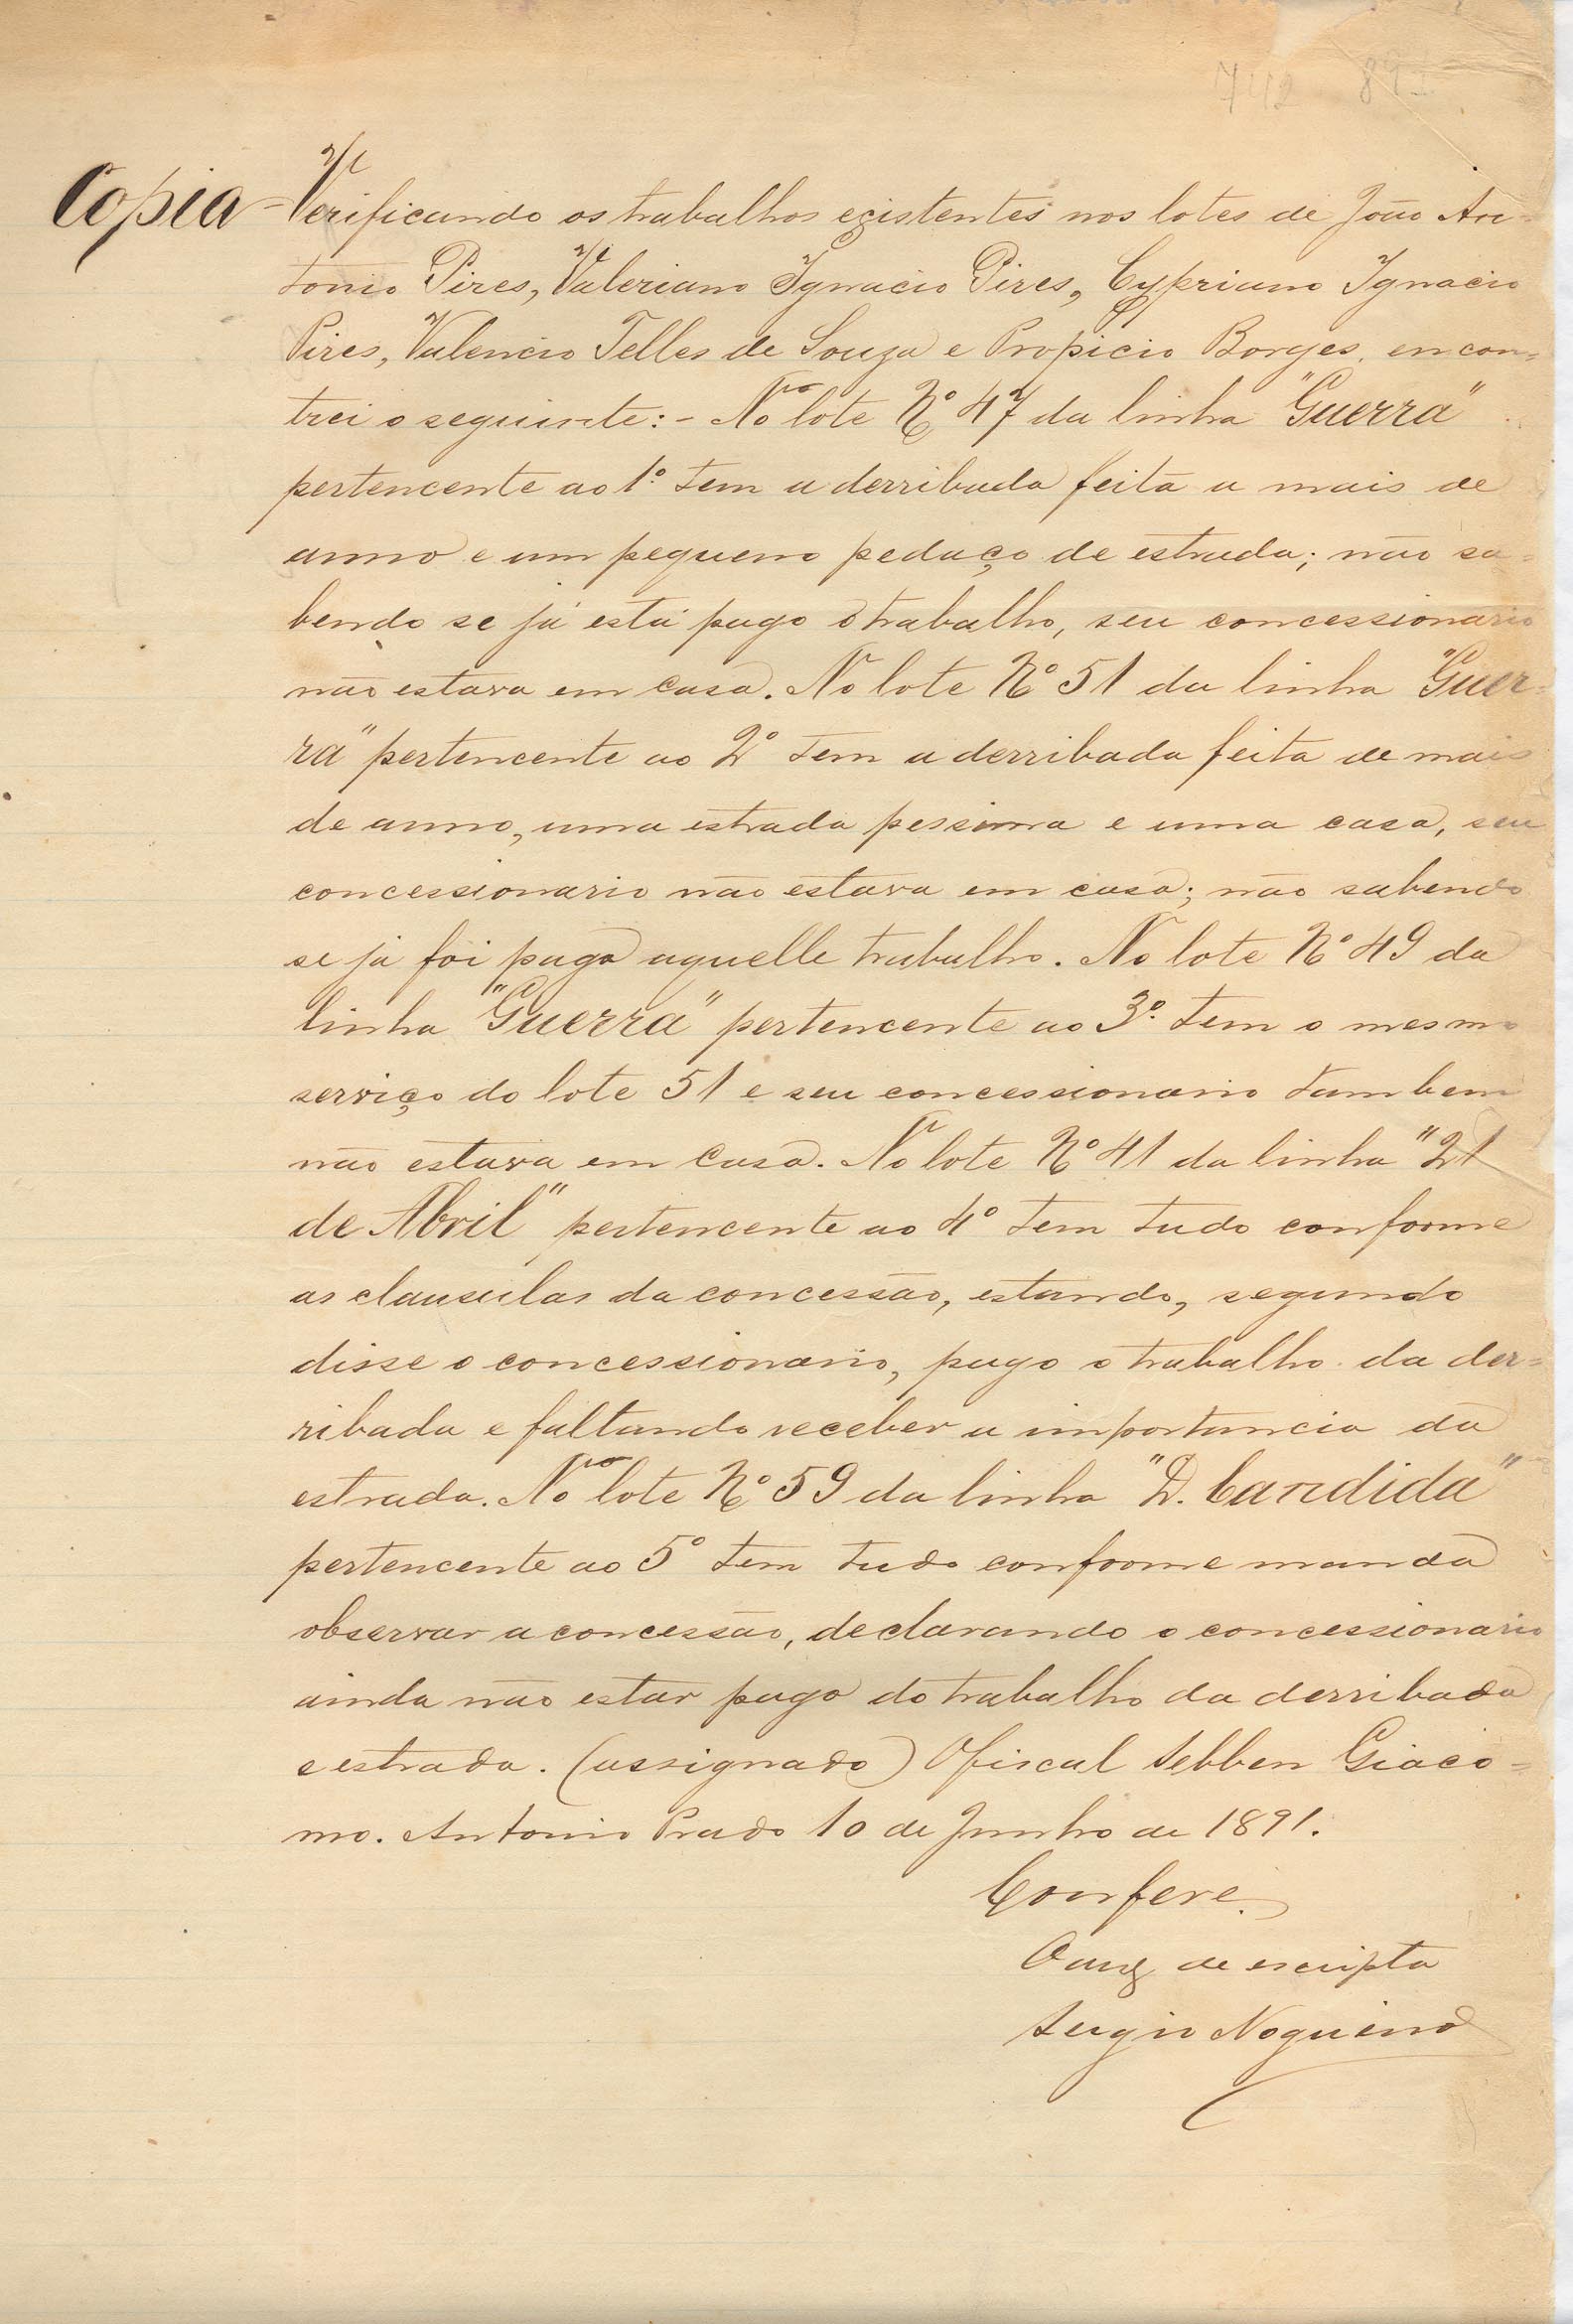 742 892
Copia - Verificando os trabalhos existentes nos lotes de João An-
tonio Pires, Valeriano Ignacio Pires, Cypriano Ignacio
Pires, Valencio Telles de Souza e Propicio Borges, encon-
trei o seguinte: - No lote Nº 47 da linha "Guerra"
pertencente ao 1º tem a derribada feita a mais de
anno e um pequeno pedaço de estrada; não sa-
bendo se já está pago o trabalho, seu concessionario
não estava em casa. No lote Nº 51 da linha "Guer-
ra" pertencente ao 2º tem a derribada feita de mais
de anno, uma estrada pessima e uma casa, seu
concessionario não estava em casa; não sabendo
se já foi pago aquelle trabalho. No lote Nº 49 da
linha "Guerra" pertencente ao 3º tem o mesmo
serviço do lote 51 e seu concessionario tambem
não estava em casa. No lote Nº 41 da linha "21
de Abril" pertencente ao 4º tem tudo conforme
as clausulas da concessão, estando, segundo
disse o concessionario, pago o trabalho da der-
ribada e faltando receber a importancia da
estrada. No lote Nº 59 da linha "D. Candida"
pertencente ao 5º tem tudo conforme manda
observar a concessão, declarando o concessionario
ainda não estar pago do trabalho da derribada
e estrada. (assignado) O fiscal Sebben Giaco-
mo. Antonio Prado 10 de Junho de 1891.
Confere.
O auxº de escripta
Sergio Nogueira